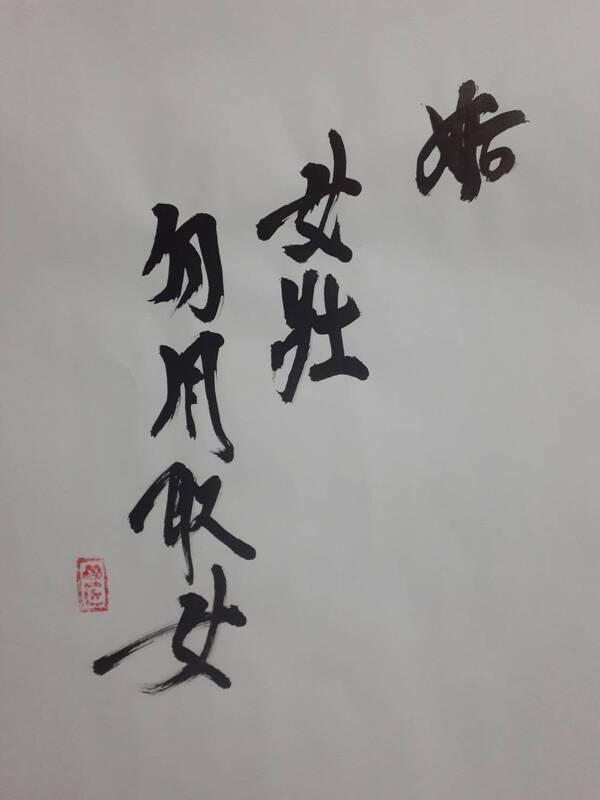 姤
女壯
勿用取女